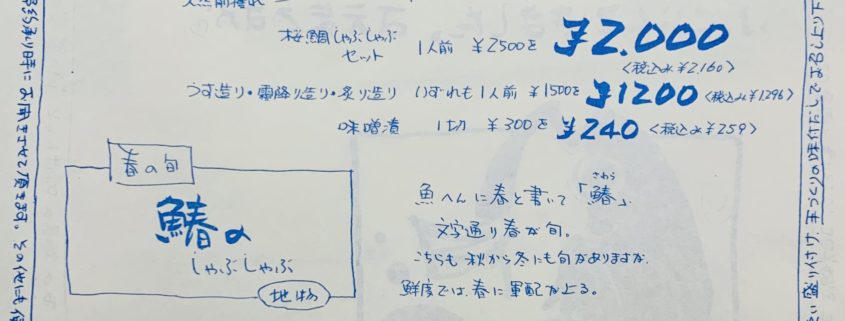 桜鯛しゃぶしゃぶ
セット 1人前 ¥2500を ¥2.000
<税込み¥2.160>
うす造り・霜降り造り・炙り造り いずれも1人前 ¥1500を ¥1200 <税込み¥1296>
味噌漬 1切 ¥300を ¥240 <税込み¥259>
春の旬
鰆の
しゃぶしゃぶ
地物
さわら
魚へんに春と書いて「鰆」、
文字通り春が旬。
こちらも秋から冬にも旬がありますが、
鮮度では、春に軍配が上る。
り時に お届けさせて頂きます。その他にも
盛り付け、手づくりの味付だしで